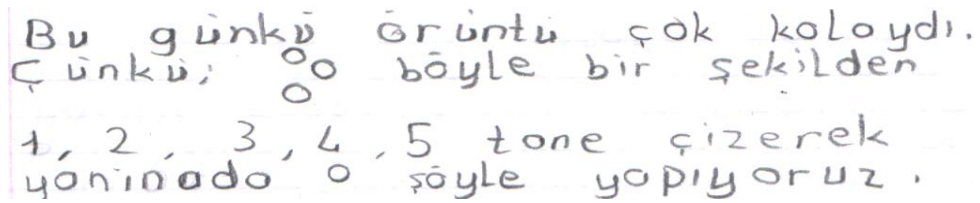 Bu günkü örüntü çok kolaydı.
Çünkü; böyle bir şekilden
1, 2, 3, 4, 5 tane çizerek
yanınada şöyle yapıyoruz.